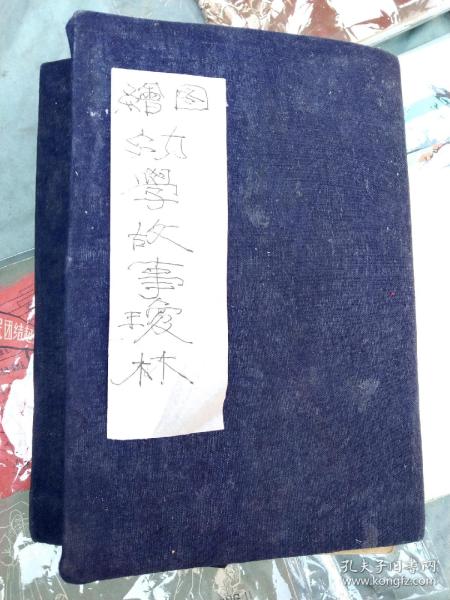 繪图
幼學故事瓊林
民团结
孔夫子旧书网
www.kongfz.com